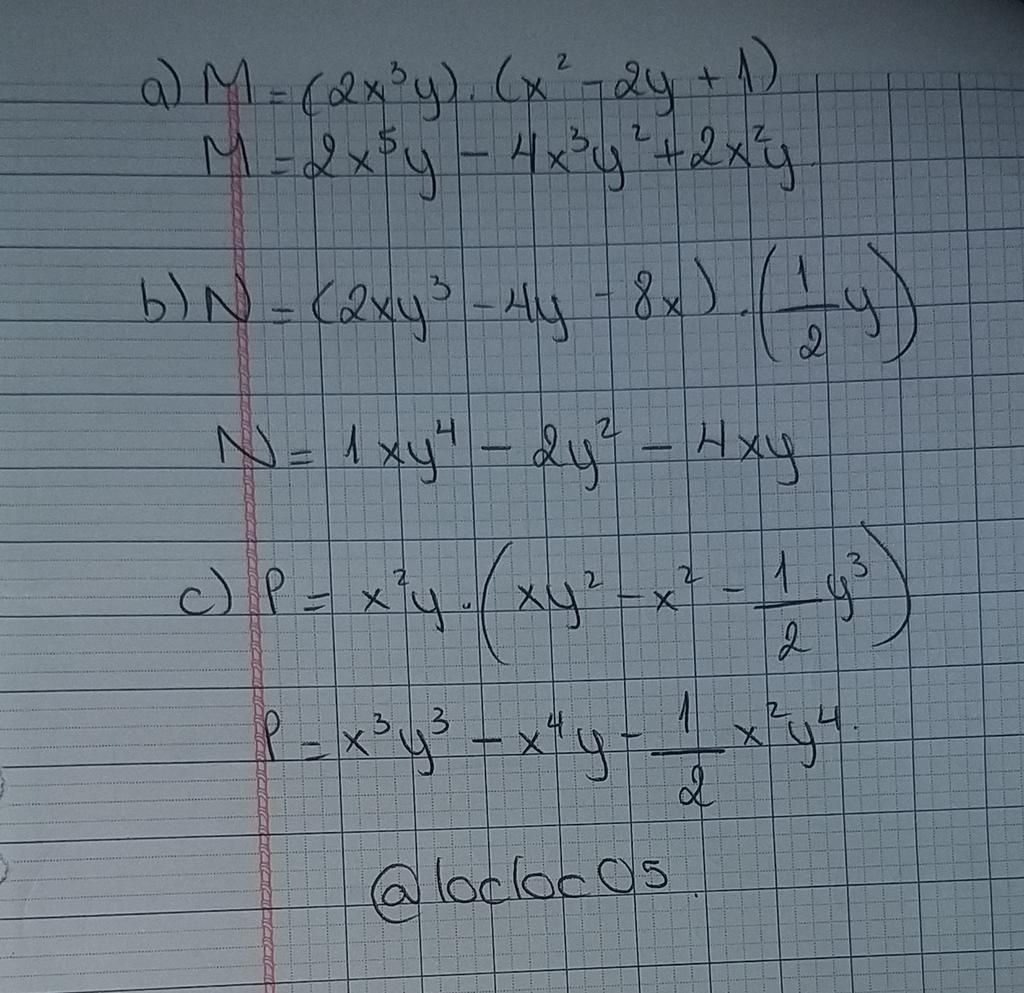 a) M = (2x³y) . (x² - 2y + 1)
M = 2x⁵y - 4x³y² + 2x²y
b) N = (2xy³ - 4y - 8x) . (1/2 y)
N = 1xy⁴ - 2y² - 4xy
c) P = x²y . (xy² - x² - 1/2 y³)
P = x³y³ - x⁴y - 1/2 x²y⁴.
@locloc05.